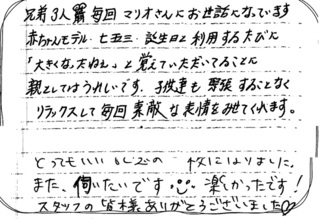 兄弟3人 毎回マリオさんにお世話になっています
赤ちゃんモデル・七五三・誕生日と利用するたびに
「大きくなったねぇ」と覚えていただいてることに
親としてはうれしいです。子供達も緊張することなく
リラックスして毎回素敵な表情をみせてくれます。
とってもいい の 枚になりました。
また、伺いたいです 楽しかったです！
スタッフの皆様ありがとうございました♡